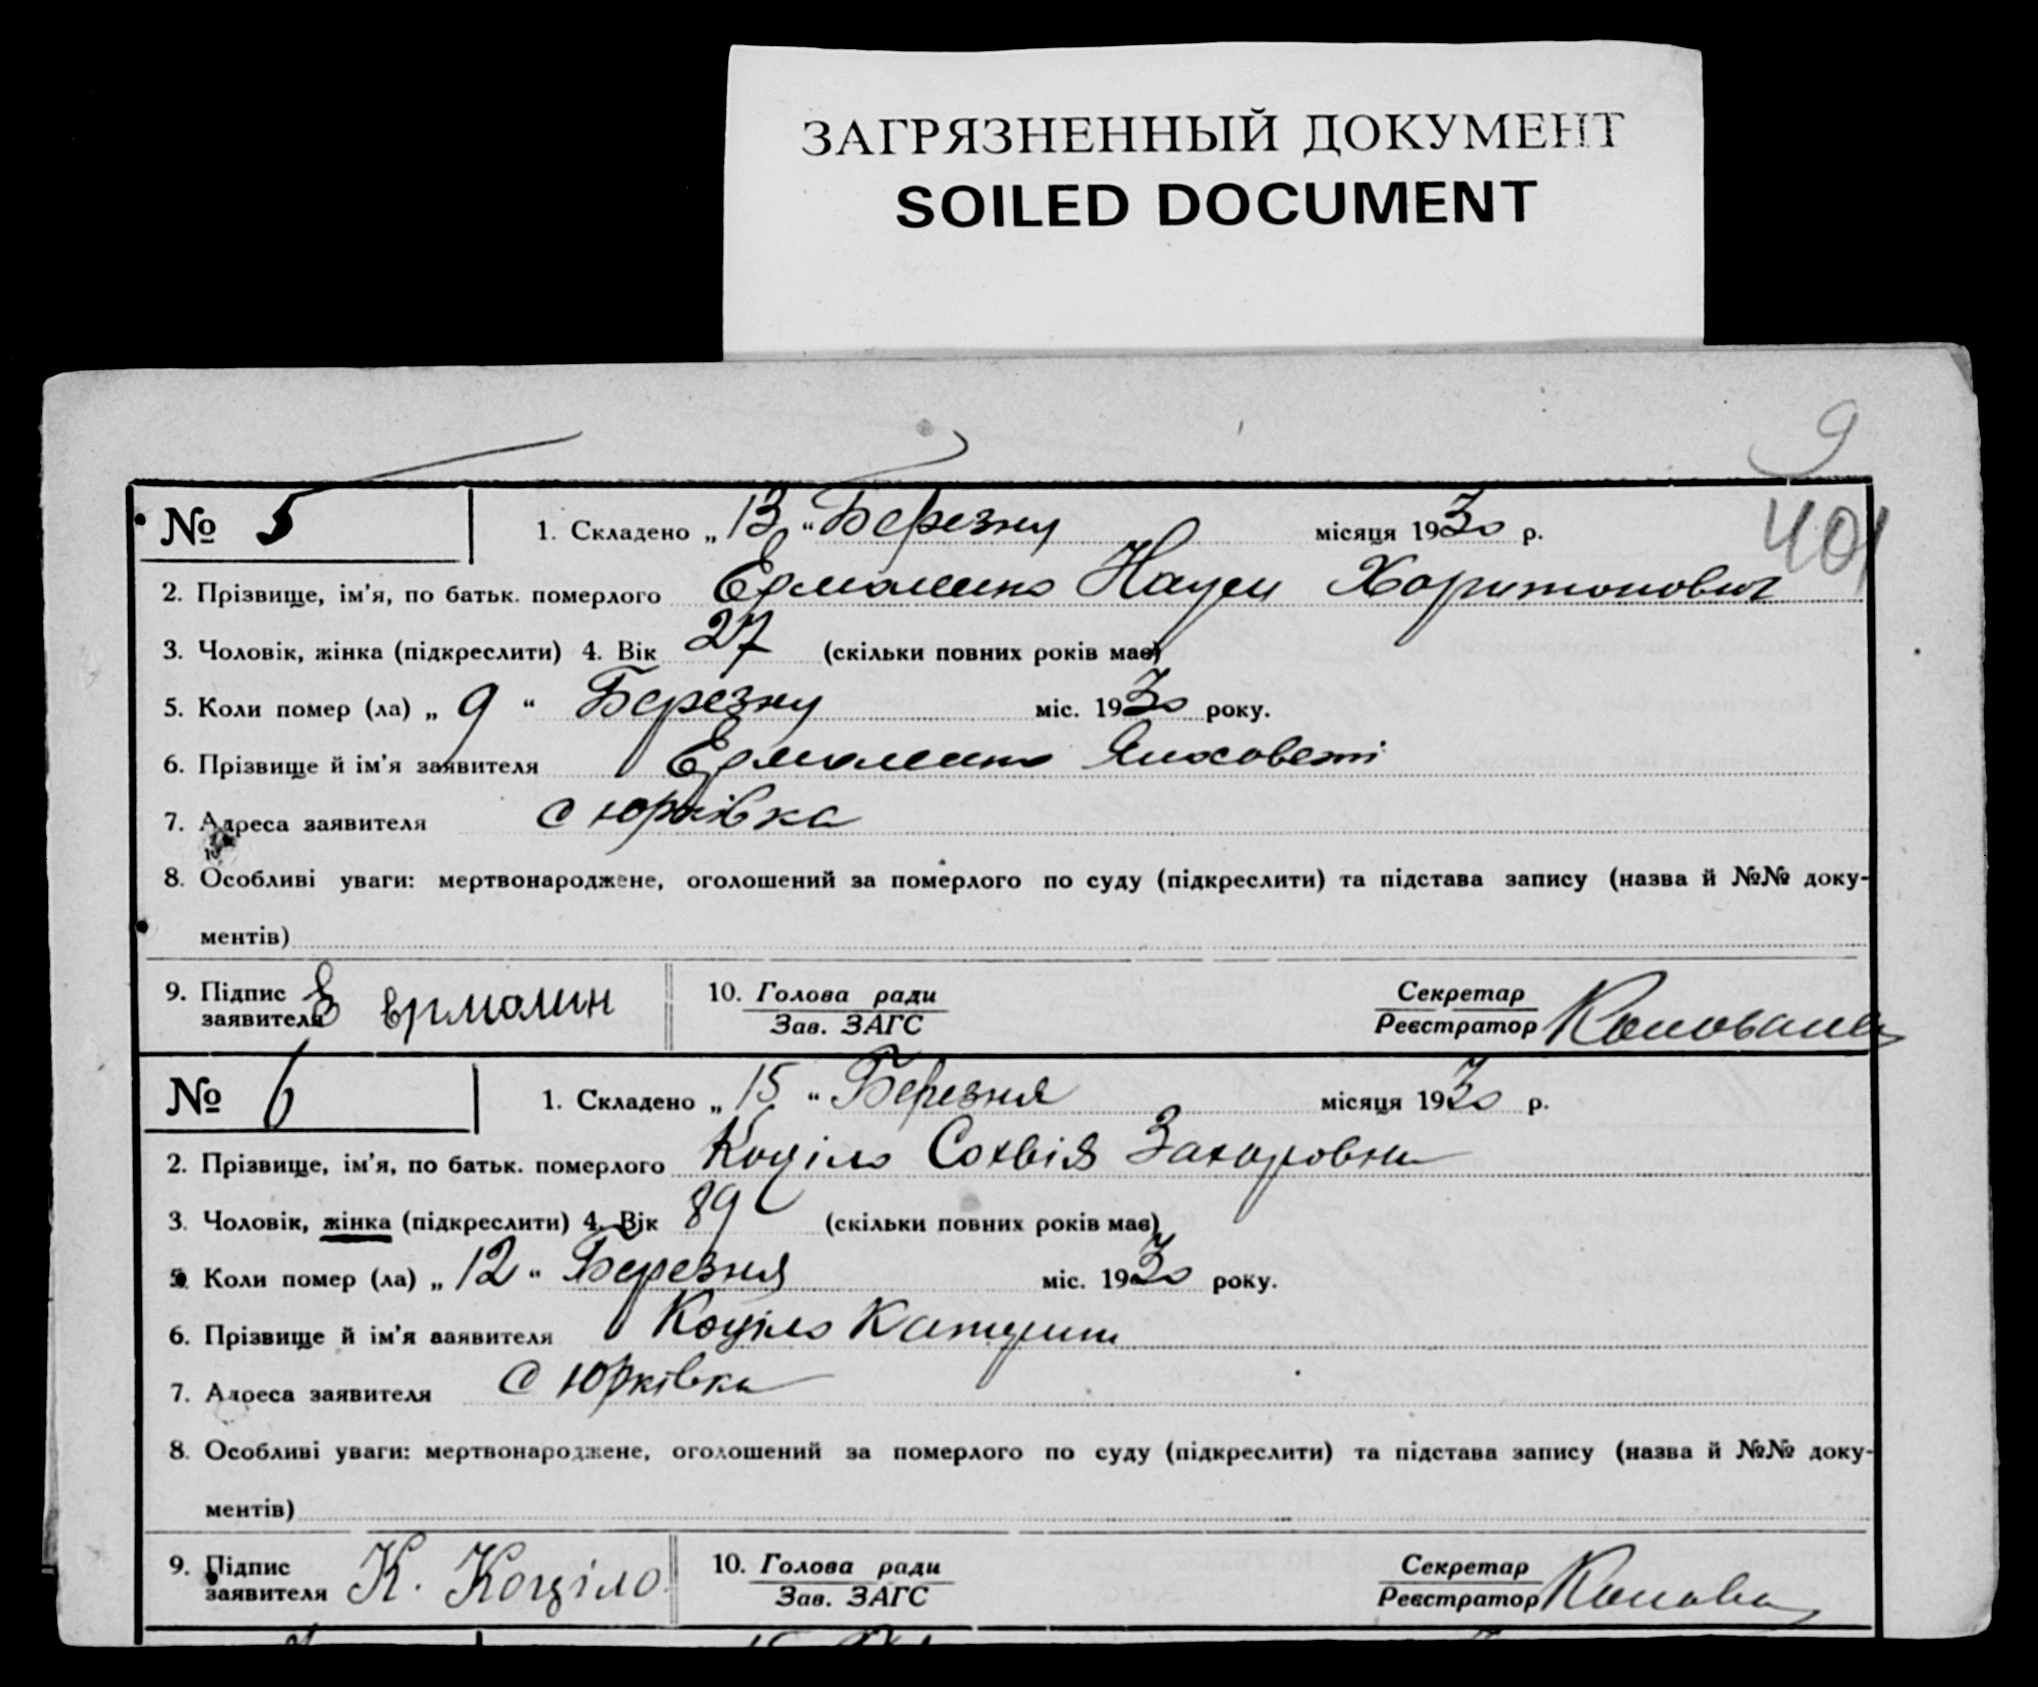 ЗАГРЯЗНЕННЫЙ ДОКУМЕНТ
SOILED DOCUMENT
9
401
№ 5 1. Складено „ 13 “ Березну місяця 1930 р.
2. Прізвище, ім'я, по батьк. померлого Ермоленко Наум Харитонович
3. Чоловік, жінка (підкреслити) 4. Вік 27 (скільки повних років має)
5. Коли помер (ла) „ 9 “ Березну міс. 1930 року.
6. Прізвище й ім'я заявителя Ермоленко
7. Адреса заявителя с Юрківка
8. Особливі уваги: мертвонароджене, оголошений за померлого по суду (підкреслити) та підстава запису (назва й №№ доку-
ментів)
9. Підпис заявителя Е Ермолин 10. Голова ради Зав. ЗАГС Секретар Реєстратор
№ 6 1. Складено „ 15 “ Березня місяця 1930 р.
2. Прізвище, ім'я, по батьк. померлого Коціло Сохвія Захаровна
3. Чоловік, жінка (підкреслити) 4. Вік 89 (скільки повних років має)
5. Коли помер (ла) „ 12 “ Березня міс. 1930 року.
6. Прізвище й ім'я заявителя Коціло
7. Адреса заявителя с Юрківка
8. Особливі уваги: мертвонароджене, оголошений за померлого по суду (підкреслити) та підстава запису (назва й №№ доку-
ментів)
9. Підпис заявителя К. Коціло 10. Голова ради Зав. ЗАГС Секретар Реєстратор